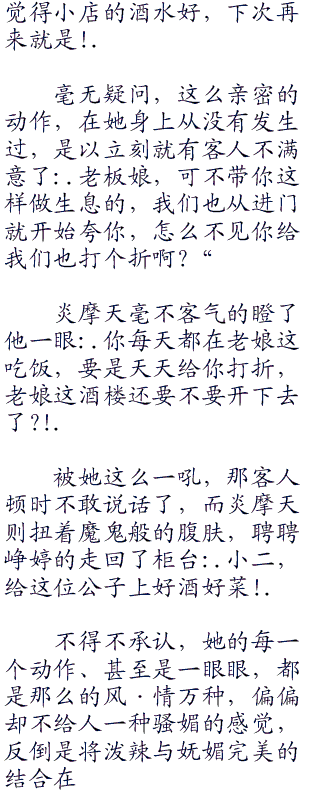 觉得小店的酒水好，下次再
来就是!.
毫无疑问，这么亲密的
动作，在她身上从没有发生
过，是以立刻就有客人不满
意了:.老板娘，可不带你这
样做生息的，我们也从进门
就开始夸你，怎么不见你给
我们也打个折啊？“
炎摩天毫不客气的瞪了
他一眼:.你每天都在老娘这
吃饭，要是天天给你打折，
老娘这酒楼还要不要开下去
了?!.
被她这么一吼，那客人
顿时不敢说话了，而炎摩天
则扭着魔鬼般的腹肤，聘聘
峥婷的走回了柜台:.小二，
给这位公子上好酒好菜!.
不得不承认，她的每一
个动作、甚至是一眼眼，都
是那么的风·情万种，偏偏
却不给人一种骚媚的感觉，
反倒是将泼辣与妩媚完美的
结合在